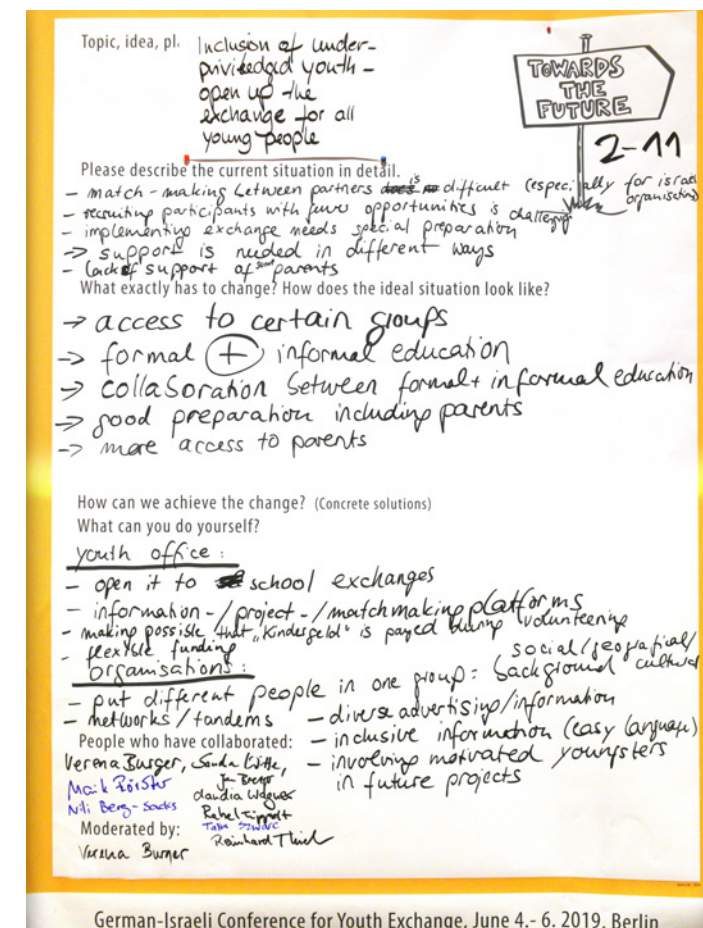 Topic, idea, pl.
Inclusion of under-
priviledged youth -
open up the
exchange for all
young people
TOWARDS
THE
FUTURE
2-11
Please describe the current situation in detail.
- match-making between partners is difficult (especially for israel
organisations)
- recruiting participants with fewer opportunities is challenging
- implementing exchange needs special preparation
-> support is needed in different ways
- lack of support of some parents
What exactly has to change? How does the ideal situation look like?
-> access to certain groups
-> formal + informal education
-> collaboration between formal + informal education
-> good preparation including parents
-> more access to parents
How can we achieve the change? (Concrete solutions)
What can you do yourself?
youth office:
- open it to school exchanges
- information-/project-/matchmaking platforms
- making possible that „Kindergeld" is payed during volunteering
- flexible funding
organisations:
- put different people in one group: social/geografical/
cultural background
- networks/tandems
- diverse advertising/information
- inclusive information (easy language)
- involving motivated youngsters
in future projects
People who have collaborated:
Verena Burger,
Nili Berg-Sacks
Claudia Wagner
Moderated by:
Verena Burger
Reinhard Thiel
German-Israeli Conference for Youth Exchange, June 4.- 6. 2019, Berlin